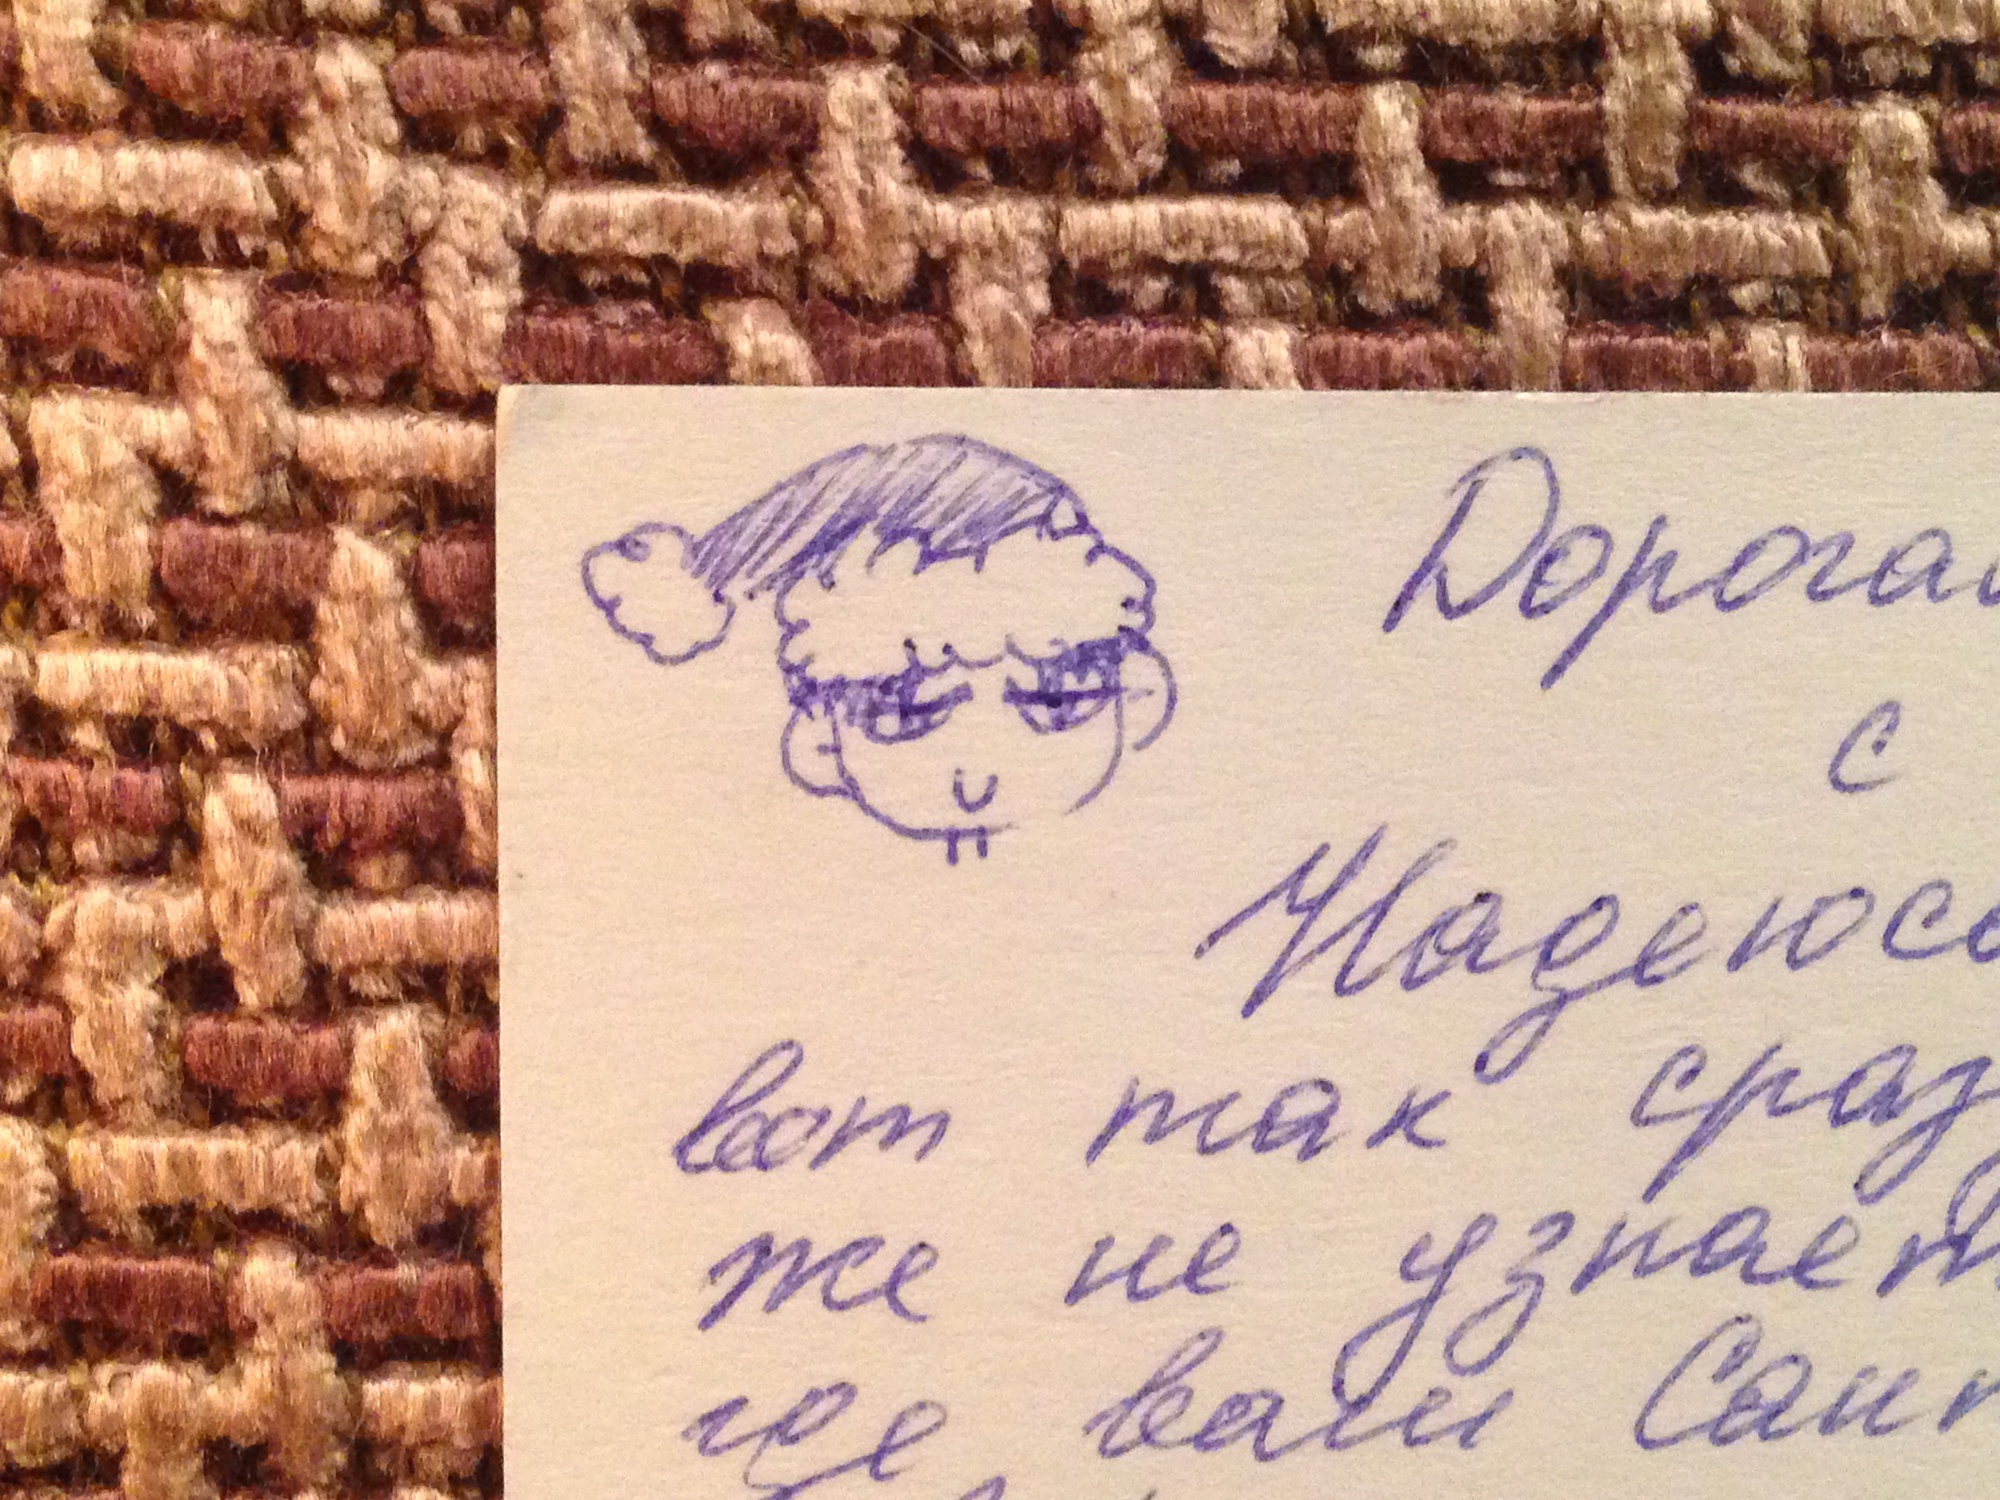 Дорогая
с
Надеюсь
вот так сразу
же не узнает
где ваш Сан